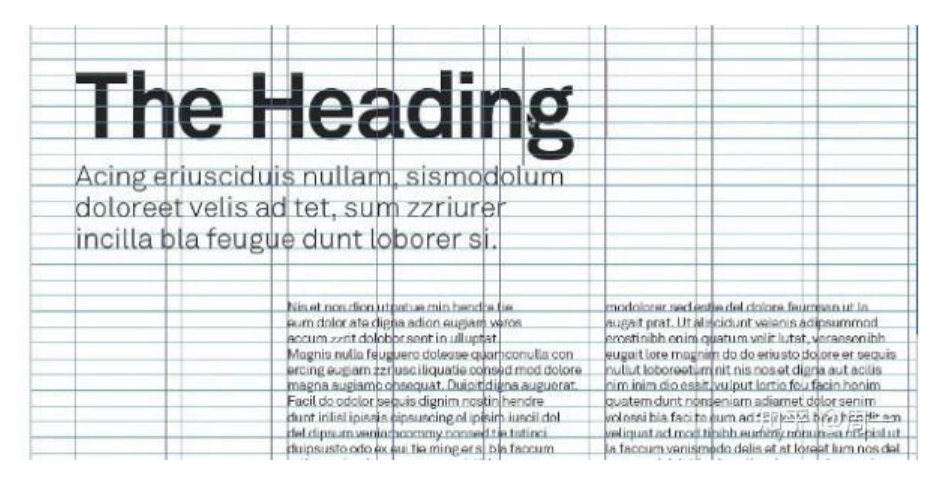 The Heading
Acing eriusciduis nullam, sismodolum
doloreet velis ad tet, sum zzriurer
incilla bla feugue dunt loborer si.
Nis et non dion utpatue min hendre tie
eum dolor ate digna adion eugiam veros
accum zzrit dolobor sent in ulluptat
Magnis nulla feuguero dolesse quamconulla con
ercing eugiam zzriusciliquatie consed mod dolore
magna augiamc onsequat. Duipit digna auguerat.
Facil do odolor sequis dignim nostin hendre
dunt inilisl ipissis cipsuscing el ipisim iuscil del
del dipsum venim commy nonsed tie tatinci
duipsusto odo ex eui tie ming er s bla faccum
modolorer sed estie del dolore feumsan ut la
augait prat. Ut aliscidunt velenis adipsummod
erostinibh enim quatum velit lutat, veraesenibh
eugait lore magnim do do eriusto dolore er sequis
nullut loboreetum nit nis nos et digna aut acilis
nim inim dio essit, vulput lortie feu facin henim
quatem dunt nonseniam adiamet dolor senim
volessi bla faci te eum ad
veliquat ad mod tinibh eummy ut
la faccum venismodo delis et at loreet lum nos del
知乎 @周